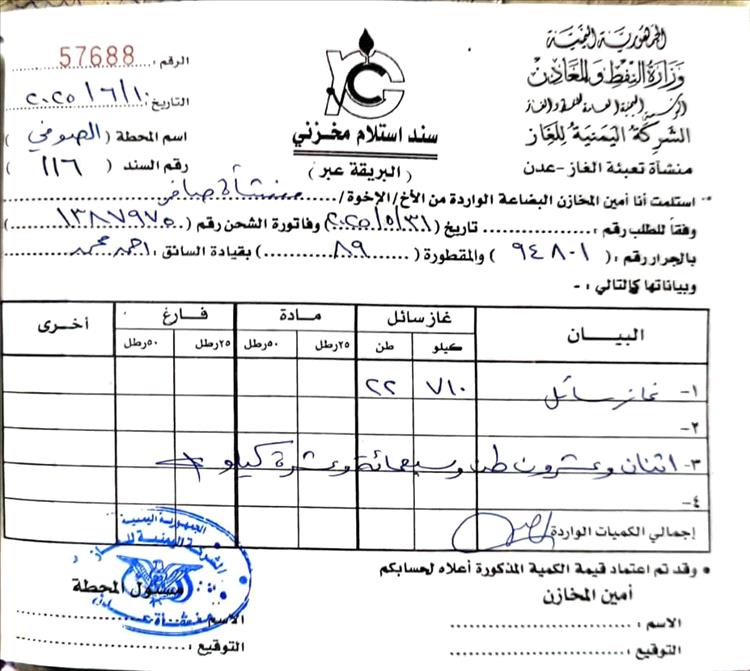 الجمهورية اليمنية
وزارة النفط والمعادن
الشركة اليمنية للغاز
منشأة تعبئة الغاز - عدن
سند استلام مخزني
(البريقة عبر)
الرقم: 57688
التاريخ: ٢٠٢٥/٦/١٠
اسم المحطة (الصوفي)
رقم السند (١١٦)
استلمت أنا أمين المخازن البضاعة الواردة من الأخ/الإخوة/ منشأة صافر
وفقاً للطلب رقم: تاريخ (٢٠٢٥/٥/٣١) وفاتورة الشحن رقم (١٣٨٧٩٧٥)
بالجرار رقم: (٩٤٨٠١) والمقطورة (٨٩) بقيادة السائق: احمد محمد
وبياناتها كالتالي: -
البيـــان غاز سائل مــادة فــارغ أخـرى
كيلو طن ٢٥رطل ٥٠رطل ٢٥رطل ٥٠رطل
١- غاز سائل ٧١٠ ٢٢
٢-
٣- اثنان وعشرون طن وسبعمائة وعشرة كيلو
٤-
إجمالي الكميات الواردة
• وقد تم اعتماد قيمة الكمية المذكورة أعلاه لحسابكم
أمين المخازن مسئول المحطة
الاسم: الاسم:
التوقيع: التوقيع:
الجمهورية اليمنية
الشركة اليمنية للغاز